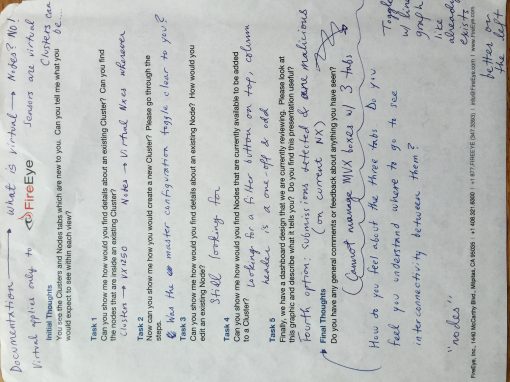 Documentation → What is Virtual → Nodes? No!
Virtual applies only to Senders are virtual
Clusters can be...
FireEye
Initial Thoughts
You see the Clusters and Nodes tabs which are new to you. Can you tell me what you
would expect to see within each view?
Task 1
Can you show me how would you find details about an existing Cluster? Can you find
the nodes that are inside an existing Cluster?
Clusters VX12550 Nodes → Virtual Nxes wherever
Task 2
Now can you show me how you would create a new Cluster? Please go through the
steps.
Was the master configuration toggle clear to you?
Task 3
Can you show me how would you find details about an existing Node? How would you
edit an existing Node?
Still looking for
Task 4
Can you show me how would you find Nodes that are currently available to be added
to a Cluster? Looking for a filter button on top, column
header is a one-off & odd
Task 5
Finally, we have a dashboard design that we are currently reviewing. Please look at
this graphic and describe what it tells you? Do you find this presentation useful?
Fourth option: Submissions detected & are malicious
(on current NX)
Final Thoughts
Do you have any general comments or feedback about anything you have seen?
(Cannot manage MVX boxes w/ 3 tabs
How do you feel about the three tabs Do you
feel you understand where to go to see
interconnectivity between them?
"nodes"
Toggle
w/ line
graph
like
already
exists
better on
the left
FireEye, Inc. 1440 McCarthy Blvd., Milpitas, CA 95035 | +1 408.321.6300 | +1 877.FIREEYE (347.3393) | info@FireEye.com | www.FireEye.com